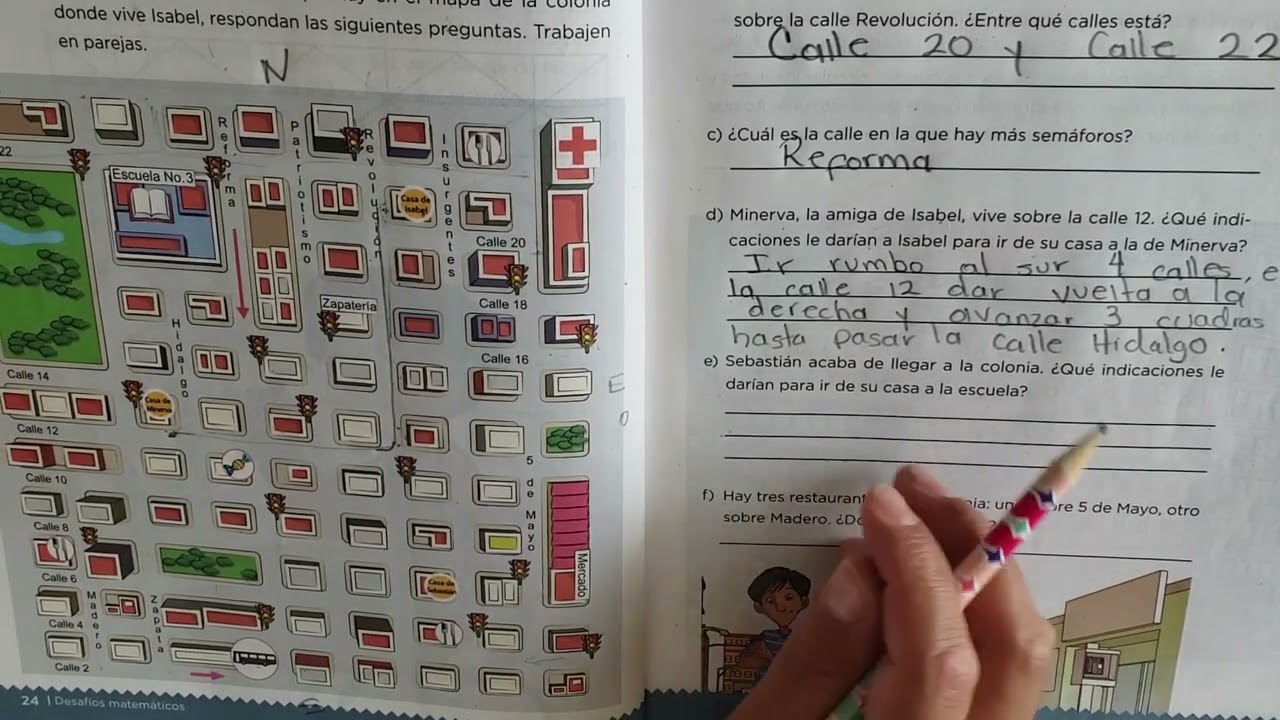 donde vive Isabel, respondan las siguientes preguntas. Trabajen
en parejas.
N
22
Escuela No.3
Reforma
Patriotismo
Revolución
Insurgentes
Casa de
Isabel
Calle 20
Calle 18
Zapatería
Hidalgo
Calle 16
Calle 14
Casa de
Minerva
Calle 12
Calle 10
5 de Mayo
Calle 8
Mercado
Calle 6
Casa de
Sebastián
Madero
Zapata
Calle 4
Calle 2
24 | Desafíos matemáticos
sobre la calle Revolución. ¿Entre qué calles está?
Calle 20 y Calle 22
c) ¿Cuál es la calle en la que hay más semáforos?
Reforma
d) Minerva, la amiga de Isabel, vive sobre la calle 12. ¿Qué indi-
caciones le darían a Isabel para ir de su casa a la de Minerva?
Ir rumbo al sur 4 calles, e
la calle 12 dar vuelta a la
derecha y avanzar 3 cuadras
hasta pasar la calle Hidalgo.
e) Sebastián acaba de llegar a la colonia. ¿Qué indicaciones le
darían para ir de su casa a la escuela?
f) Hay tres restaurant 5 de Mayo, otro
sobre Madero.